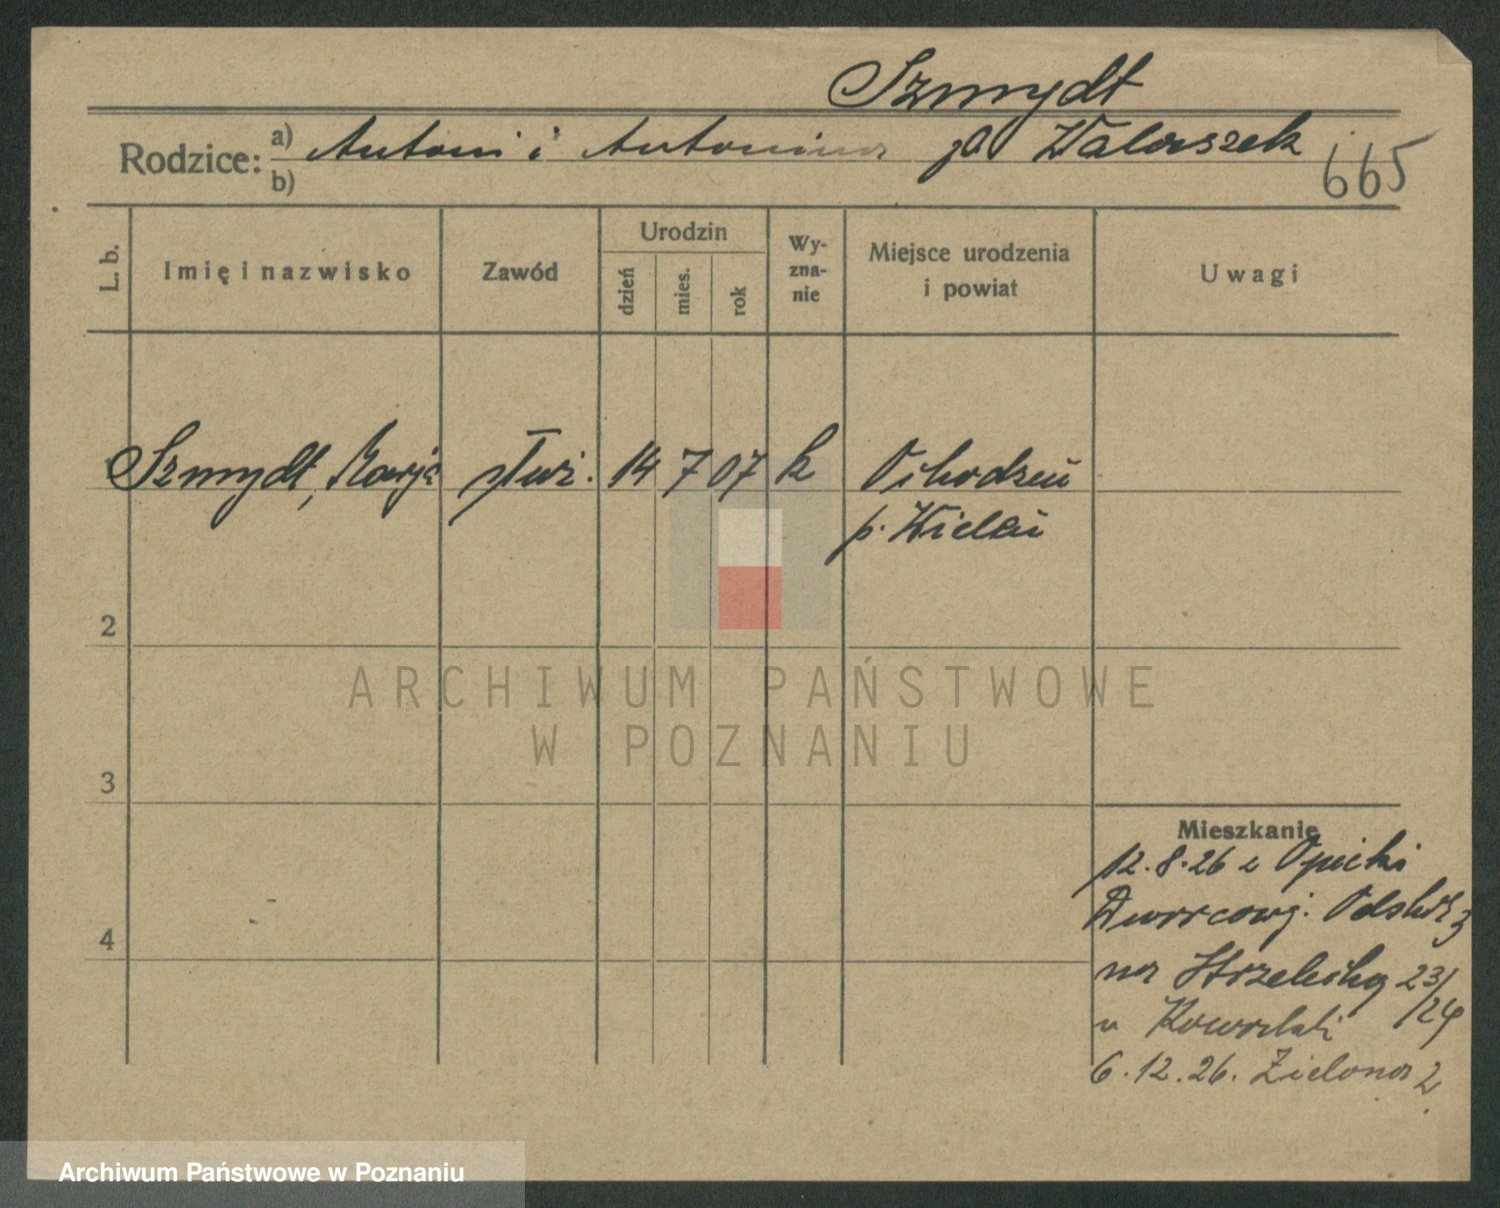 Szmydt
Rodzice: a) Antoni i Antonina zd Walaszek
b)
665
L. b.
Imię i nazwisko
Zawód
Urodzin
dzień
mies.
rok
Wy-
zna-
nie
Miejsce urodzenia
i powiat
Uwagi
Szmydt, Marja służ. 14 7 07 k Ochodzeń
p. Wieluń
2
3
4
Mieszkanie
12.8.26 z Opieki
Dworcowj.
na Strzelecką 23/
/24
u
6.12.26. Zielona 2
ARCHIWUM PAŃSTWOWE
W POZNANIU
Archiwum Państwowe w Poznaniu